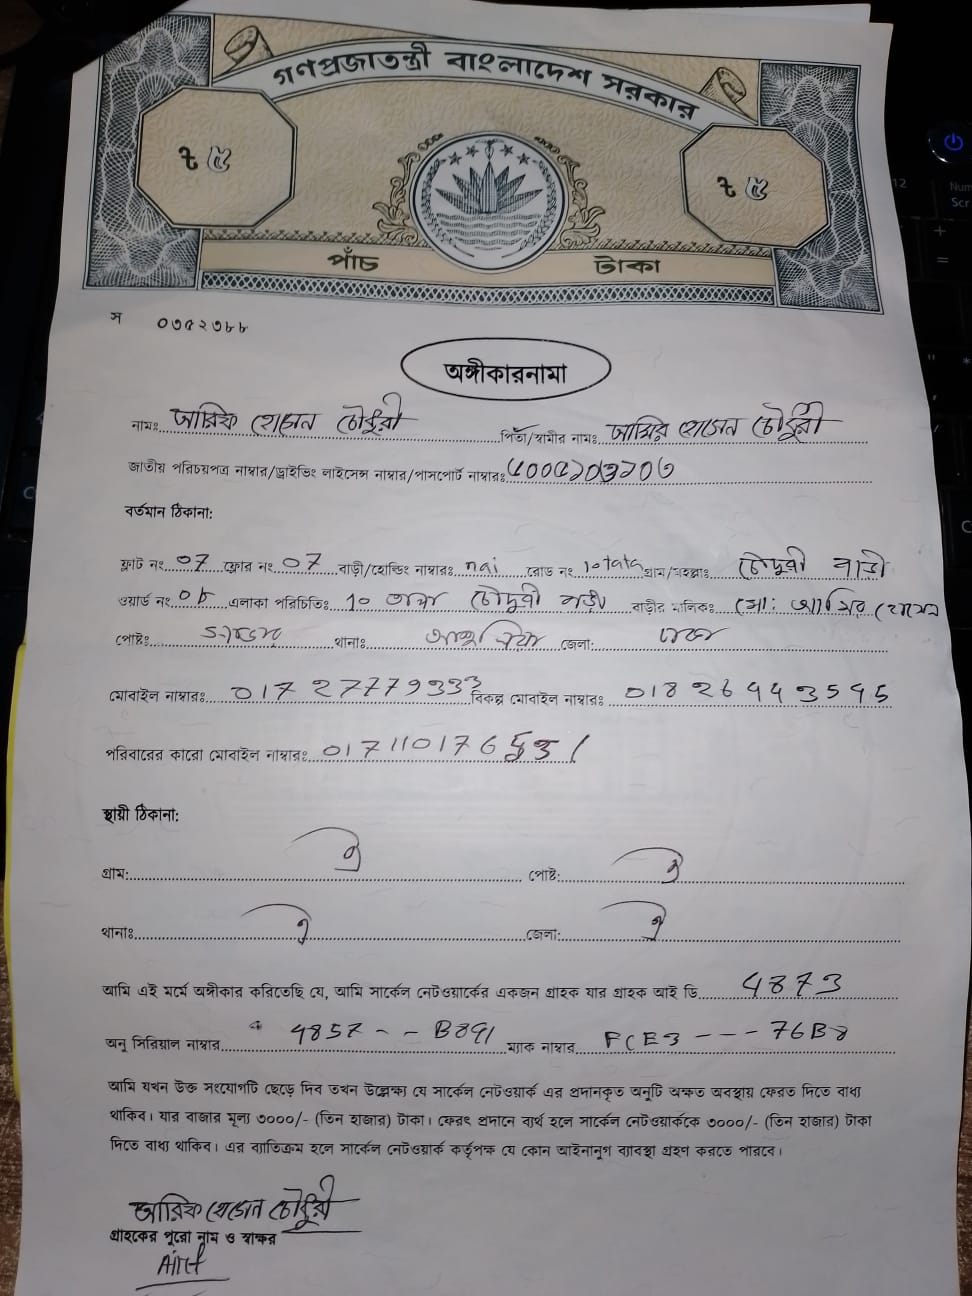 গণপ্রজাতন্ত্রী বাংলাদেশ সরকার
৳ ৫
৳ ৫
পাঁচ টাকা
স ০৩৫২৩৮৮
অঙ্গীকারনামা
নামঃ আরিফ হোসেন চৌধুরী পিতা/স্বামীর নামঃ আমির হোসেন চৌধুরী
জাতীয় পরিচয়পত্র নাম্বার/ড্রাইভিং লাইসেন্স নাম্বার/পাসপোর্ট নাম্বারঃ
বর্তমান ঠিকানা:
ফ্লাট নং ০7 ফ্লোর নং ০7 বাড়ী/হোল্ডিং নাম্বারঃ nai রোড নং 10 tala গ্রাম/মহল্লাঃ চৌধুরী বাড়ী
ওয়ার্ড নং ০৮ এলাকা পরিচিতিঃ ১০ তালা চৌধুরী বাড়ী বাড়ীর মালিকঃ মো: আমির হোসেন
পোষ্টঃ থানাঃ আশুলিয়া জেলা: ঢাকা
মোবাইল নাম্বারঃ 01727779333 বিকল্প মোবাইল নাম্বারঃ 01826443545
পরিবারের কারো মোবাইল নাম্বারঃ
স্থায়ী ঠিকানা:
গ্রাম: ঐ পোষ্ট: ঐ
থানাঃ ঐ জেলা: ঐ
আমি এই মর্মে অঙ্গীকার করিতেছি যে, আমি সার্কেল নেটওয়ার্কের একজন গ্রাহক যার গ্রাহক আই ডি 4873
অনু সিরিয়াল নাম্বার 4857 -- B891 ম্যাক নাম্বার FCE3 --- 76B8
আমি যখন উক্ত সংযোগটি ছেড়ে দিব তখন উল্লেক্ষ্য যে সার্কেল নেটওয়ার্ক এর প্রদানকৃত অনুটি অক্ষত অবস্থায় ফেরত দিতে বাধ্য
থাকিব। যার বাজার মূল্য ৩০০০/- (তিন হাজার) টাকা। ফেরৎ প্রদানে ব্যর্থ হলে সার্কেল নেটওয়ার্ককে ৩০০০/- (তিন হাজার) টাকা
দিতে বাধ্য থাকিব। এর ব্যাতিক্রম হলে সার্কেল নেটওয়ার্ক কর্তৃপক্ষ যে কোন আইনানুগ ব্যাবস্থা গ্রহণ করতে পারবে।
আরিফ হোসেন চৌধুরী
গ্রাহকের পুরো নাম ও স্বাক্ষর